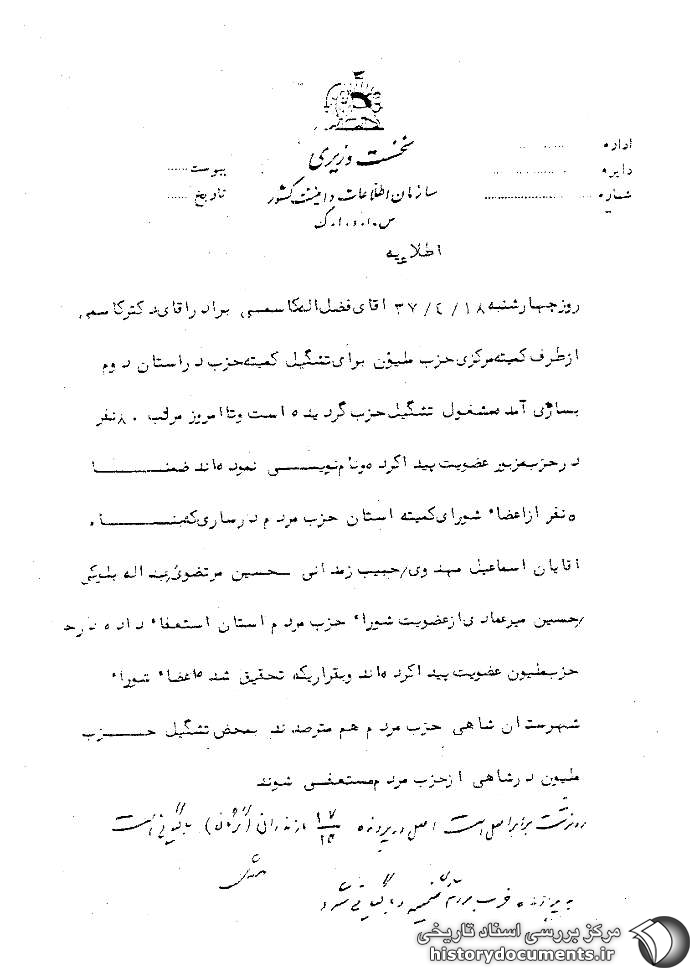 نخست وزیری
سازمان اطلاعات و امنیت کشور
س.ا.و.ا.ک
اداره
دایره
شماره
پیوست
تاریخ
اطلاعیه
روز چهارشنبه ۳۷/٤/۱۸ اقای فضل اله کاسمی برادر اقای دکتر کاسمی
از طرف کمیته مرکزی حزب ملیون برای تشگیل کمیته حزب در استان دوم
بساری آمده مشغول تشگیل حزب گردیده است و تا امروز مرتب ۸۰ نفر
در حزب مزبور عضویت پیدا کرده و نام نویسی نموده اند ضمنا
۵ نفر از اعضاء شورای کمیته استان حزب مردم در ساری که
اقایان اسماعیل مهدوی/حبیب زمدانی - حسین مرتضوی/یداله
/حسین میرعمادی از عضویت شوراء حزب مردم استان استعفاء داده در
حزب ملیون عضویت پیدا کرده اند و بقراریکه تحقیق شد اعضاء شوراء
شهرستان شاهی حزب مردم هم مترصدند بمحض تشگیل حزب
ملیون در شاهی از حزب مردم مستعفی شوند
رونوشت برابر اصل است اصل در پرونده ۱۷/۱۴ مازندران (گرگان) بایگانی است
به پرونده حزب مردم ضمیمه و بایگانی شود
مرکز بررسی اسناد تاریخی
historydocuments.ir